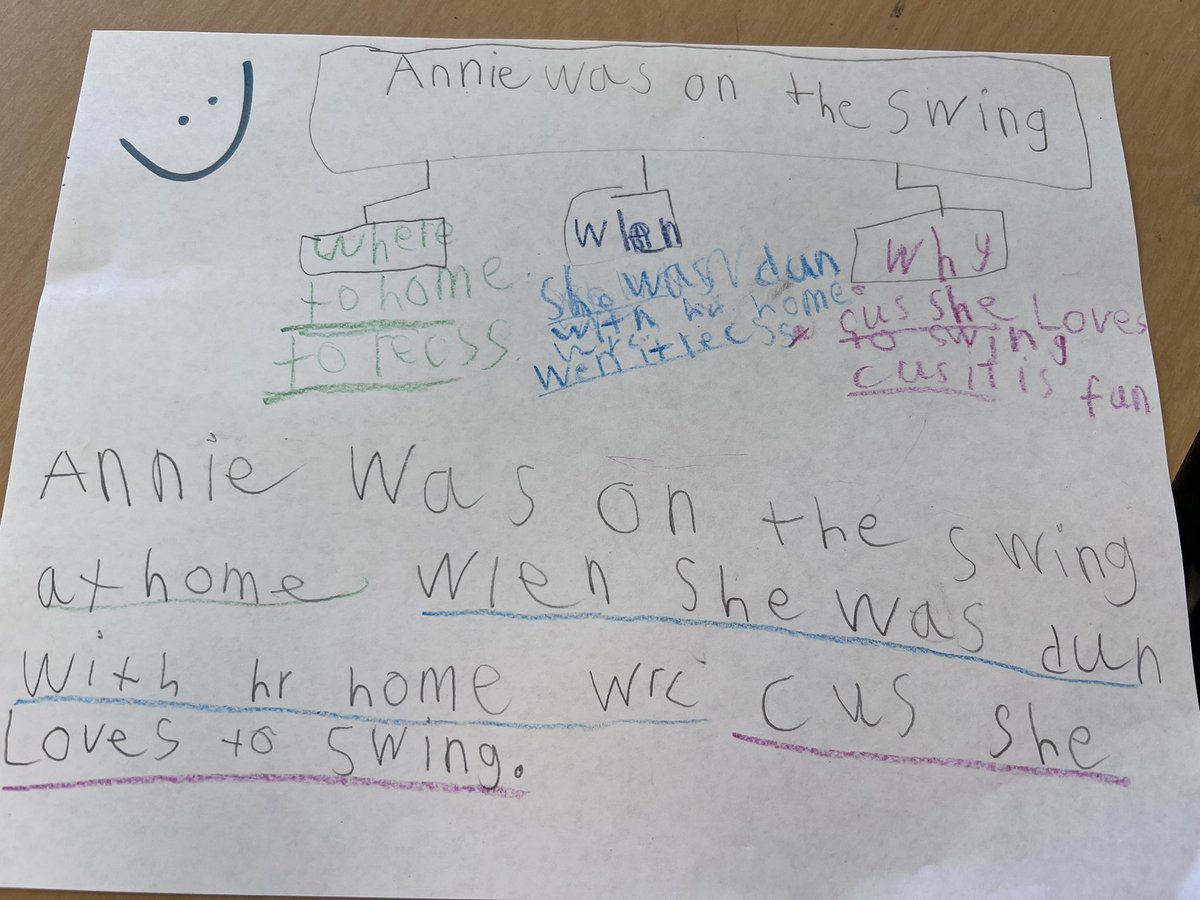 Annie was on the swing
where
to home
to recss
wlen
she was dun
with hr home
wrc
wen it recss
why
cus she Loves
to swing
cus it is fun
Annie was on the swing
at home wlen she was dun
with hr home wrc cus she
Loves to swing.